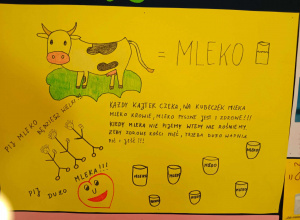 = MLEKO
KAŻDY KAJTEK CZEKA, NA KUBECZEK MLEKA
MLEKO KROWIE, MLEKO PYSZNE JEST I ZDROWE!!!
KIEDY MLEKA NIE PIJEMY WTEDY NIE ROŚNIEMY
ŻEBY ZDROWE KOŚCI MIEĆ, TRZEBA DUŻO WAPNIA
PIĆ I JEŚĆ!!!
PIJ MLEKO
BĘDZIESZ WIELKI
PIJ DUŻO MLEKA!!!
MLEKO
MLEKO
MLEKO
MLEKO
MLEKO
MLEKO
MLEKO